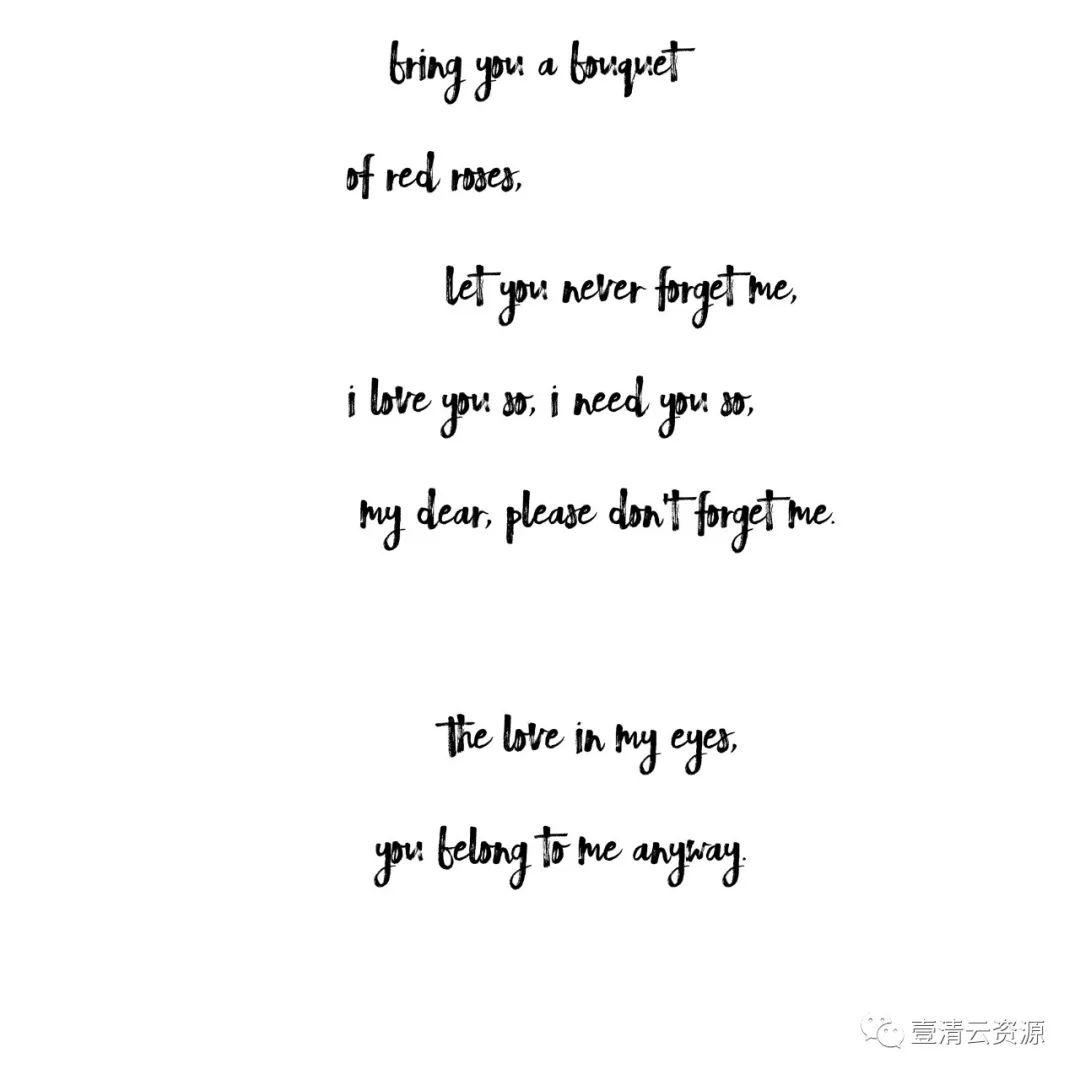 bring you a bouquet
of red roses,
let you never forget me,
i love you so, i need you so,
my dear, please don't forget me.
the love in my eyes,
you belong to me anyway.
壹清云资源